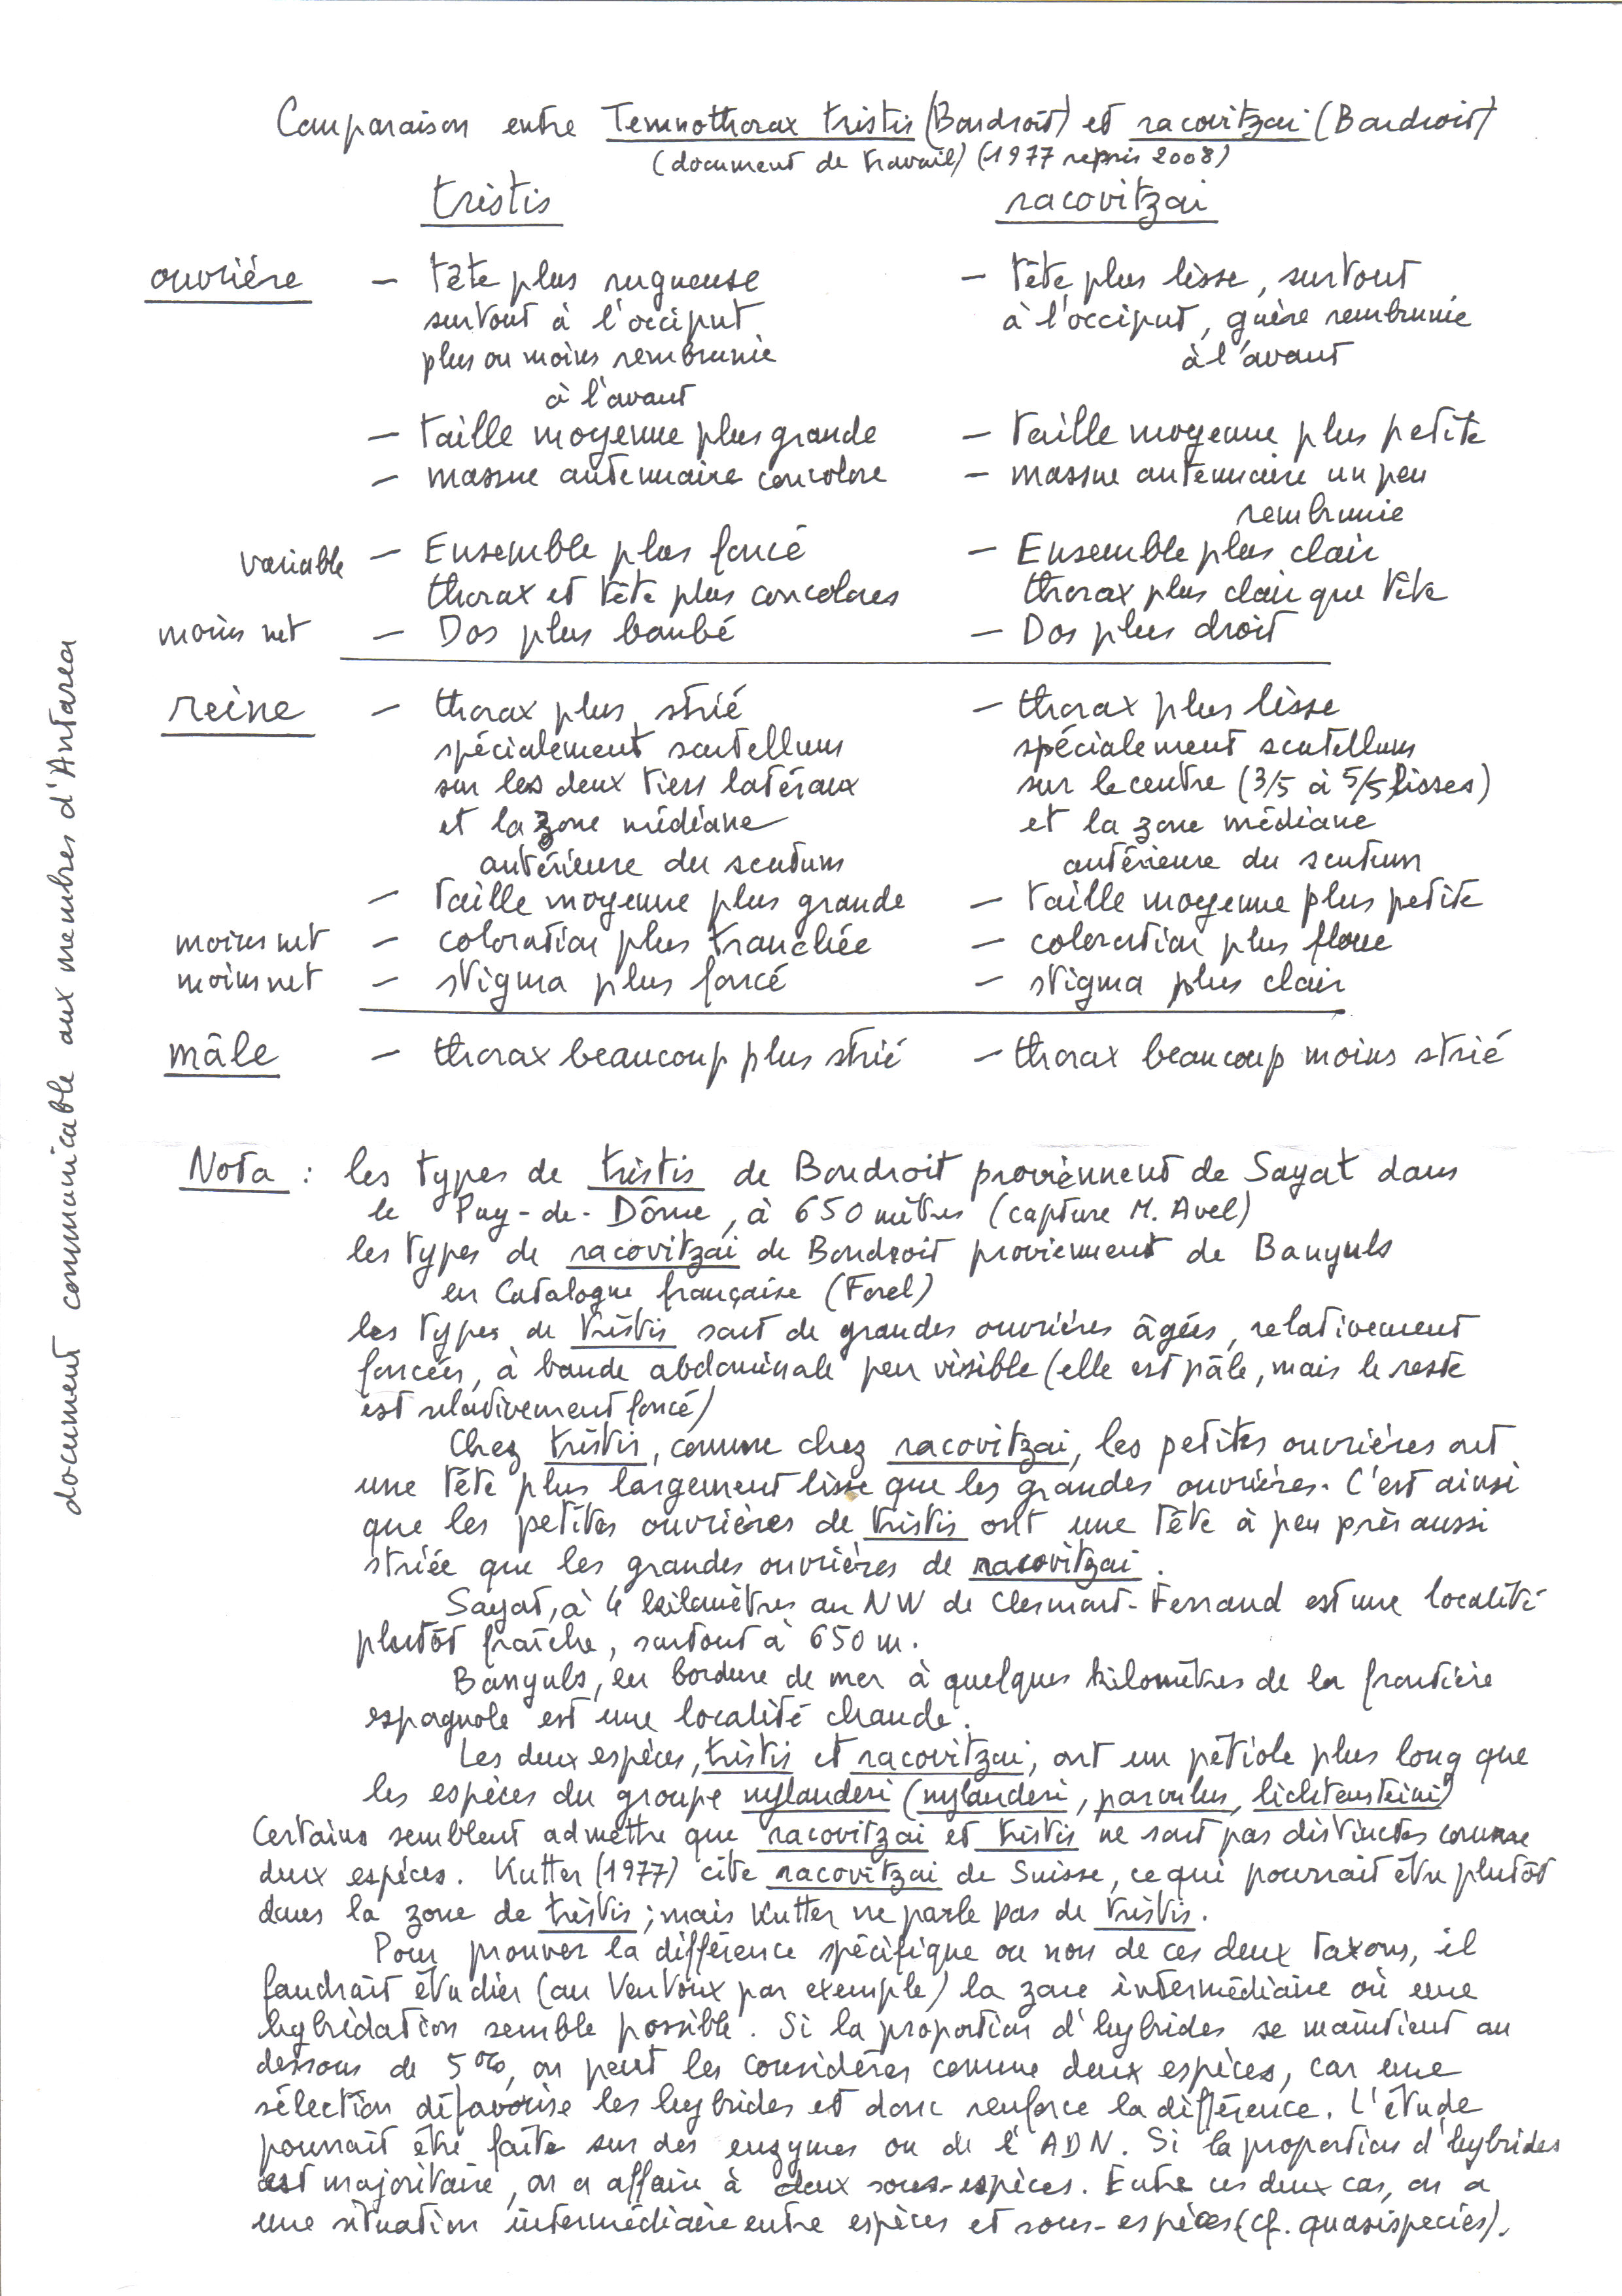 Comparaison entre Temnothorax tristis (Bondroit) et racovitzai (Bondroit)
(document de travail) (1977 repris 2008)
tristis
racovitzai
ouvrière
– tête plus rugueuse
surtout à l'occiput
plus ou moins rembrunie
à l'avant
– tête plus lisse, surtout
à l'occiput, guère rembrunie
à l'avant
– taille moyenne plus grande
– taille moyenne plus petite
– massue antennaire concolore
– massue antennaire un peu
rembrunie
variable – Ensemble plus foncé
thorax et tête plus concolores
– Ensemble plus clair
thorax plus clair que tête
moins net – Dos plus bombé
– Dos plus droit
reine
– thorax plus strié
spécialement scutellum
sur les deux tiers latéraux
et la zone médiane
antérieure du scutum
– thorax plus lisse
spécialement scutellum
sur le centre (3/5 à 5/5 lisses)
et la zone médiane
antérieure du scutum
– taille moyenne plus grande
– taille moyenne plus petite
moins net – coloration plus tranchée
– coloration plus floue
moins net – stigma plus foncé
– stigma plus clair
mâle
– thorax beaucoup plus strié
– thorax beaucoup moins strié
Nota : les types de tristis de Bondroit proviennent de Sayat dans
le Puy-de-Dôme, à 650 mètres (capture M. Avel)
les types de racovitzai de Bondroit proviennent de Banyuls
en Catalogne française (Forel)
les types de tristis sont de grandes ouvrières âgées, relativement
foncées, à bande abdominale peu visible (elle est pâle, mais le reste
est relativement foncé)
Chez tristis, comme chez racovitzai, les petites ouvrières ont
une tête plus largement lisse que les grandes ouvrières. C'est ainsi
que les petites ouvrières de tristis ont une tête à peu près aussi
striée que les grandes ouvrières de racovitzai.
Sayat, à 4 kilomètres au NW de Clermont-Ferrand est une localité
plutôt fraîche, surtout à 650 m.
Banyuls, en bordure de mer à quelques kilomètres de la frontière
espagnole est une localité chaude.
Les deux espèces, tristis et racovitzai, ont un pétiole plus long que
les espèces du groupe nylanderi (nylanderi, parvulus, lichtensteini)
Certains semblent admettre que racovitzai et tristis ne sont pas distinctes comme
deux espèces. Kutter (1977) cite racovitzai de Suisse, ce qui pourrait être plutôt
dans la zone de tristis ; mais Kutter ne parle pas de tristis.
Pour prouver la différence spécifique ou non de ces deux taxons, il
faudrait étudier (au Ventoux par exemple) la zone intermédiaire où une
hybridation semble possible. Si la proportion d'hybrides se maintient au
dessous de 5%, on peut les considérer comme deux espèces, car une
sélection défavorise les hybrides et donc renforce la différence. L'étude
pourrait être faite sur des enzymes ou de l'ADN. Si la proportion d'hybrides
est majoritaire, on a affaire à deux sous-espèces. Entre ces deux cas, on a
une situation intermédiaire entre espèces et sous-espèces (cf. quasispecies).
document communicable aux membres d'Antarea